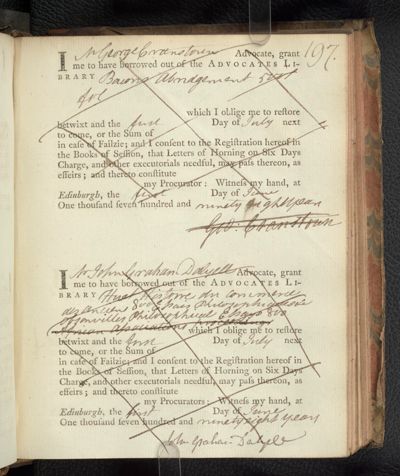 197.
I Mr George Cranstoun Advocate, grant
me to have borrowed out of the ADVOCATES LI-
BRARY Bacons Abridgement 5 vol
fol
which I oblige me to reſtore
betwixt and the first Day of July next
to come, or the Sum of
in caſe of Failzie; and I conſent to the Regiſtration hereof in
the Books of Seſſion, that Letters of Horning on Six Days
Charge, and other executorials needful, may paſs thereon, as
effeirs; and thereto conſtitute
my Procurator: Witneſs my hand, at
Edinburgh, the first Day of June
One thouſand ſeven hundred and ninety eight years
Geo. Cranstoun
I Mr John Graham Dalyell Advocate, grant
me to have borrowed out of the ADVOCATES LI-
BRARY Huet Histoire du Commerce
des Anciens 8vo
Philosophical Essays 8vo
which I oblige me to reſtore
betwixt and the first Day of July next
to come, or the Sum of
in caſe of Failzie; and I conſent to the Regiſtration hereof in
the Books of Seſſion, that Letters of Horning on Six Days
Charge, and other executorials needful, may paſs thereon, as
effeirs; and thereto conſtitute
my Procurators: Witneſs my hand, at
Edinburgh, the first Day of June
One thouſand ſeven hundred and ninety eight years
John Graham Dalyell